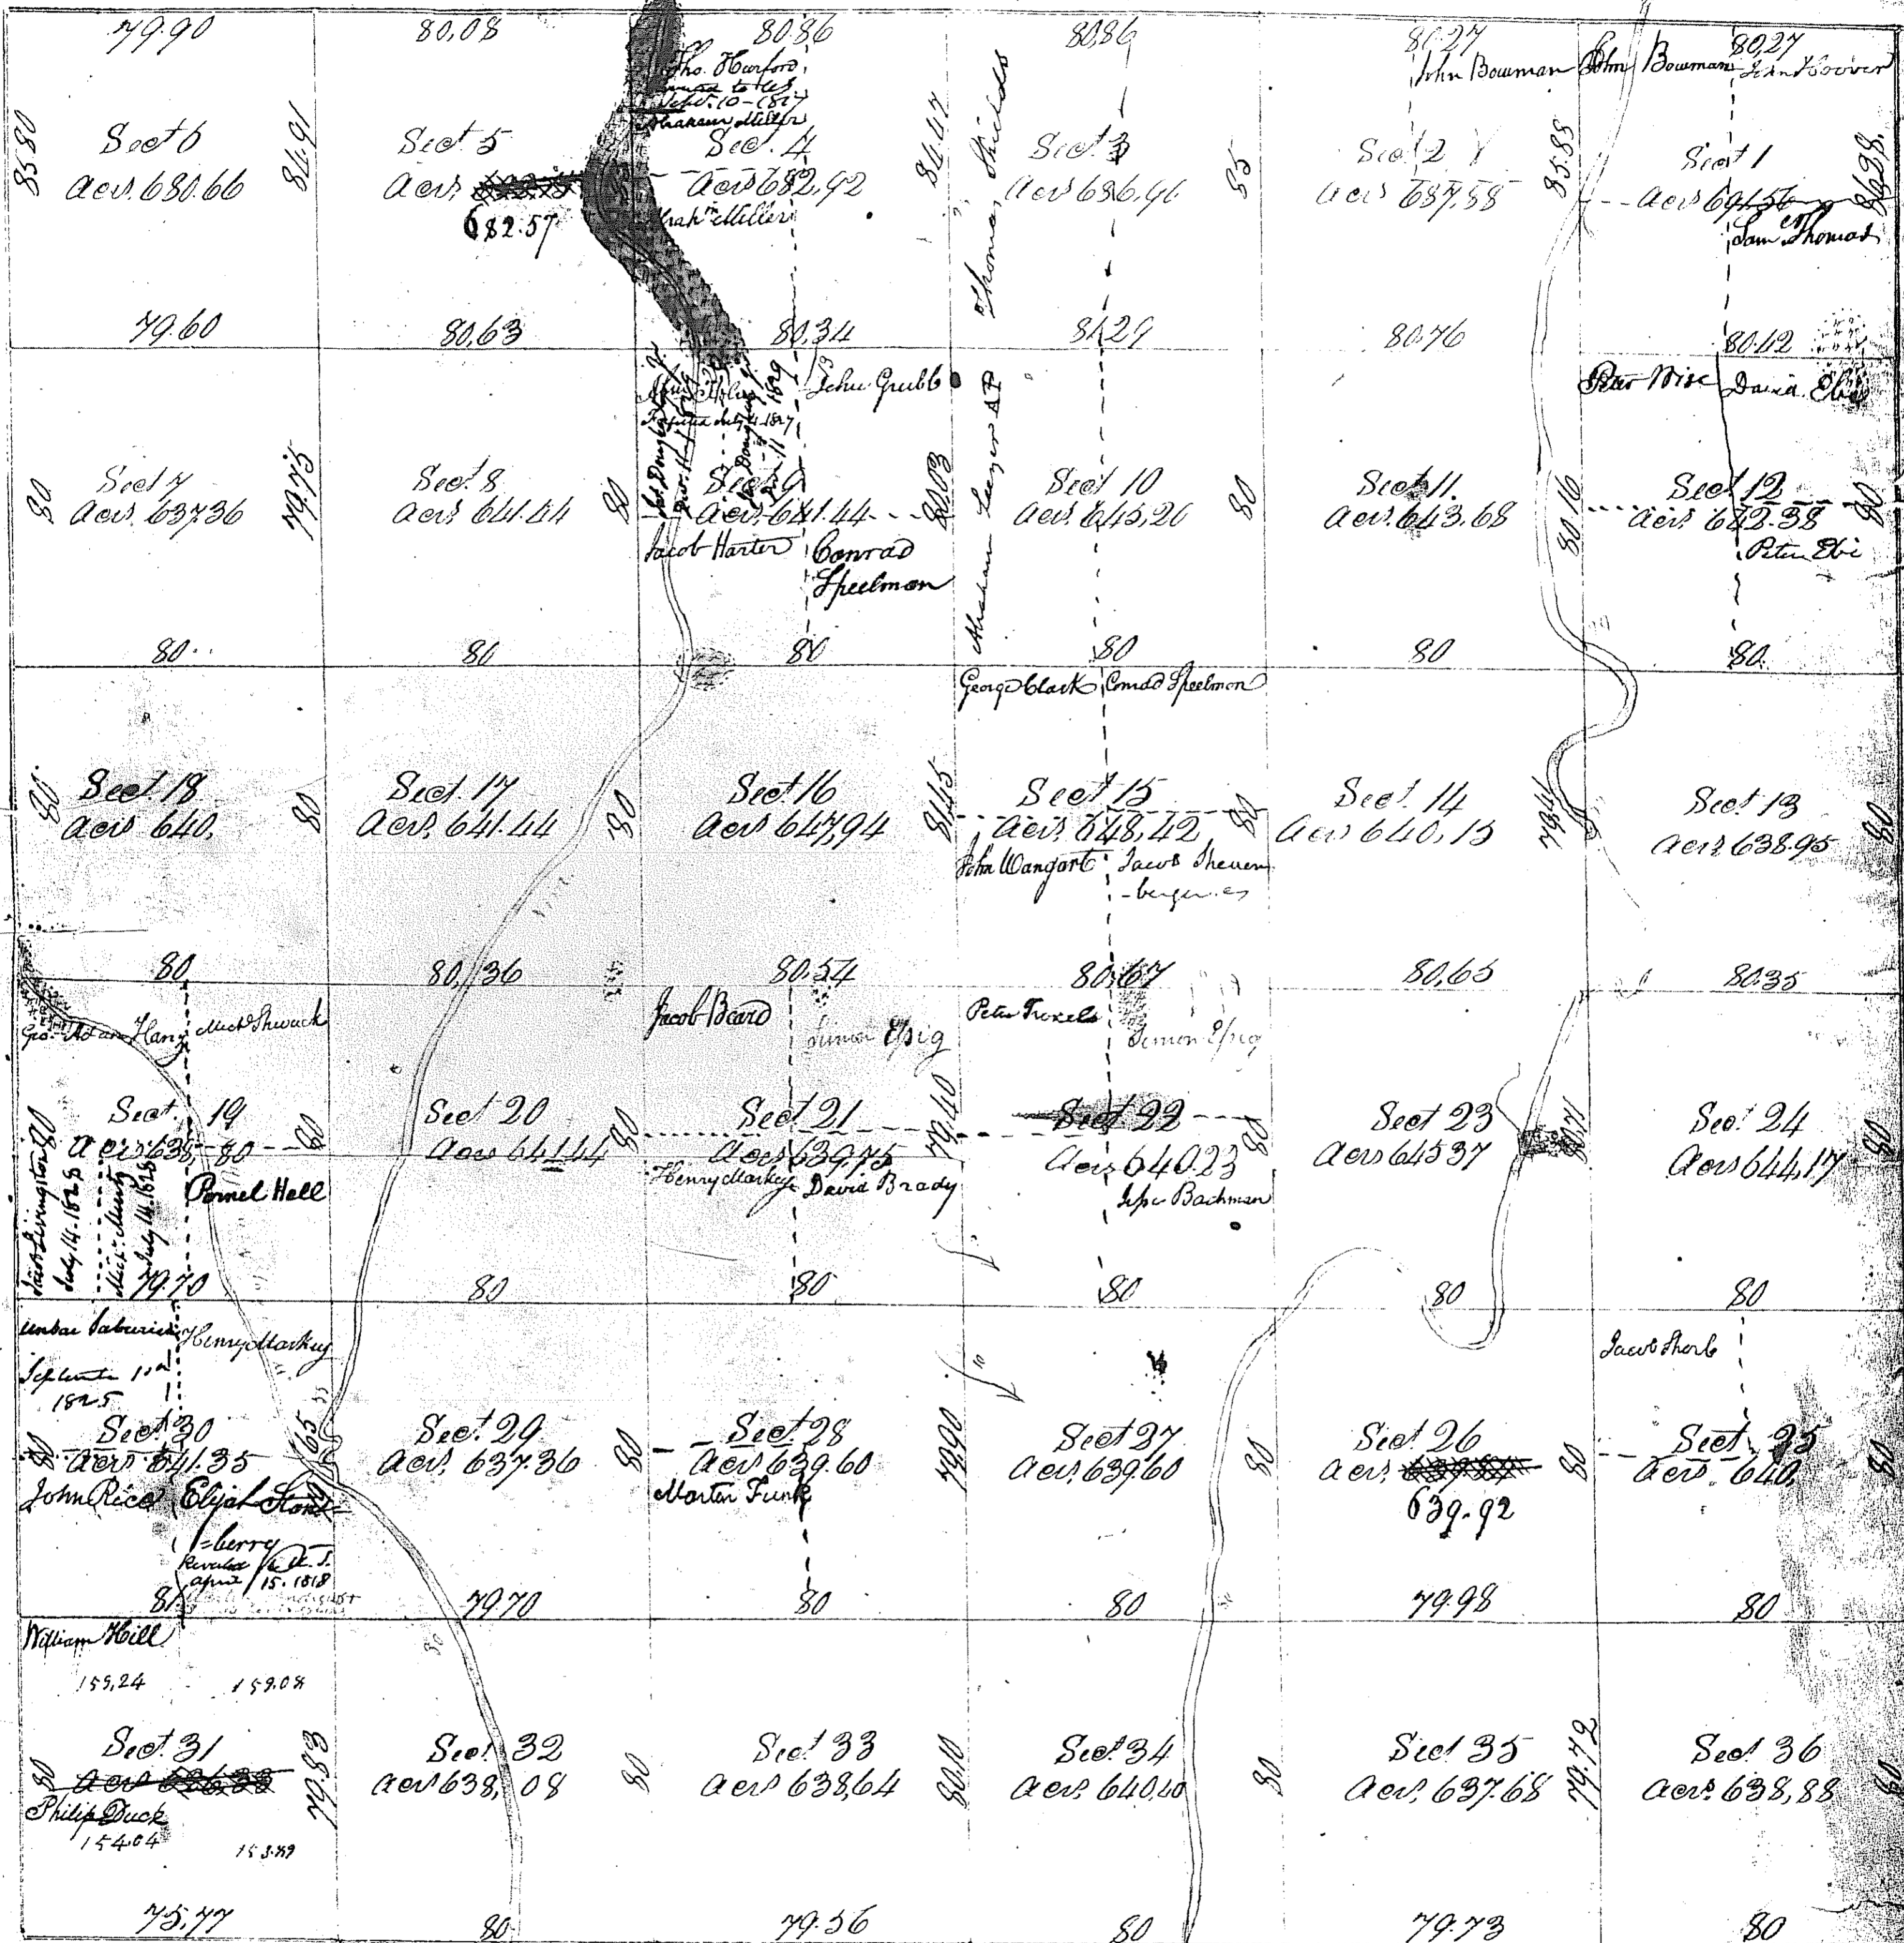 79.90
80,08
80.86
80,86
80.27
80,27
Tho. Hurford,
Sebt. 10-1827
Abraham Miller
John Bowman
John Bowman
John Hoover
85.80
Sect 6
Acrs. 680.66
84.91
Sect. 5
Acrs.
682.57
Sect. 4
Acrs 682,92
Abrahm Miller
84.47
Thomas Shields
Sect. 3
Acrs 686,96
85
Sect 2
Acrs 687,58
85.88
Sect 1
Acrs 691.56
Saml Thomas
86.98
79.60
80,63
80,34
81.29
80.76
80.12
July 4 1827
1829
John Grubb
Peter Wise
David Ebi
80
Sect 7
Acrs. 637.36
79.75
Sect. 8
Acrs 641.44
80
Sect 9
Acrs. 641.44
Jacob Harter
Conrad
Speelman
80.03
Abraham
Sect 10
Acrs. 645,20
80
Sect 11.
Acrs. 643.68
80.16
Sect 12
Acrs 642.38
Peter Ebi
80
80
80
80
80
80
80
George Clark
Conrad Speelman
80
Sect. 18
Acrs 640,
80
Sect. 17
Acrs. 641.44
80
Sect 16
Acrs 647,94
81.45
Sect 15
Acrs. 648,42
John Wangart
Jacob Sheuen
-berger
80
Sect. 14
Acrs 640,15
79.44
Sect. 13
Acrs 638.95
80
80
80,36
80.54
80,67
80,65
80.35
Geo. Adam Hany
Michl Shwack
Jacob Beard
Simon Essig
Peter Troxels
Simon Essig
80
Sect. 19
Acrs 638-80
Jacob Livingston
July 14. 1828
July 14. 1828
Pomel Hall
80
Sect 20
Acrs 641.44
80
Sect 21
Acrs 639,75
Henry Markey
David Brady
79.40
Sect 22
Acrs 640.23
Bachman
80
Sect 23
Acrs 645 37
80.71
Sec. 24
Acrs 644,17
80
79.70
80
80
80
80
80
Henry Markey
1825
Jacob Sherb
80
Sect. 30
Acrs 641.35
John Rice
Elijah Stans
=berry
Reverted to U.S.
April 15. 1818
Sec. 29
Acrs. 637.36
80
Sect. 28
Acrs 639.60
Martin Funk
79.90
Sect 27
Acrs. 639.60
80
Sect. 26
Acrs.
639.92
80
Sect. 25
Acrs. 640,
80
81
79.70
80
80
79.98
80
William Hill
159,24
159.08
80
Sect. 31
Philip Duck
154.04
153.89
79.83
Sect. 32
Acrs 638,08
80
Sect 33
Acrs 638,64
80.10
Sect. 34
Acrs. 640,40
80
Sect 35
Acrs. 637.68
79.72
Sect 36
Acrs. 638,88
80
75,77
80
79.56
80
79.73
80